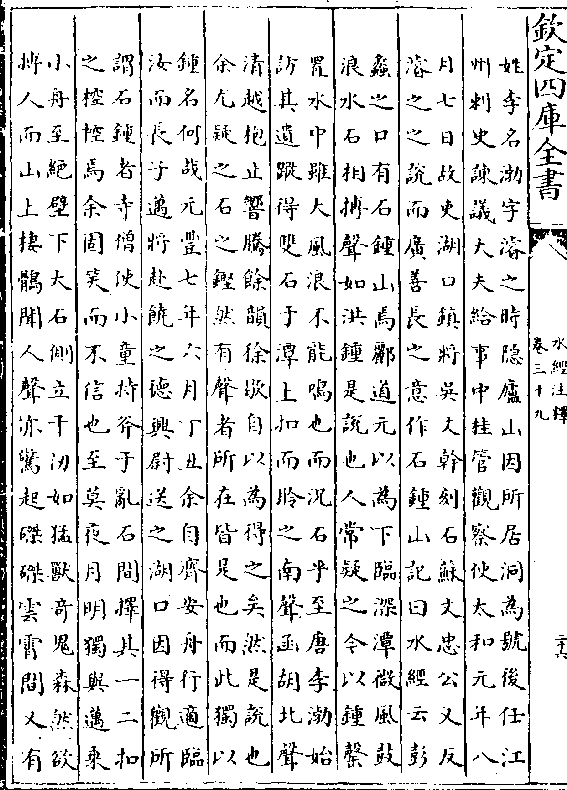 欽定四庫全書
水經注釋
卷三十九
姓李名渤字濬之時隱廬山因所居洞為號後仕江
州刺史諫議大夫給事中桂管觀察使太和元年八
月七日故吏湖口鎮將吳文幹刻石蘇文忠公又反
濬之之說而廣善長之意作石鍾山記曰水經云彭
蠡之口有石鍾山焉酈道元以為下臨深潭微風鼓
浪水石相搏聲如洪鍾是說也人常疑之今以鍾磬
置水中雖大風浪不能鳴也而況石乎至唐李渤始
訪其遺蹤得雙石于潭上扣而聆之南聲函胡北聲
清越抱止響騰餘韻徐歇自以為得之矣然是說也
余尤疑之石之鏗然有聲者所在皆是也而此獨以
鍾名何哉元豐七年六月丁丑余自齊安舟行適臨
汝而長子邁將赴饒之德興尉送之湖口因得觀所
謂石鍾者寺僧使小童持斧于亂石間擇其一二扣
之控控焉余固笑而不信也至莫夜月明獨與邁乘
小舟至絕壁下大石側立千仞如猛獸奇鬼森然欲
搏人而山上棲鶻聞人聲亦驚起磔磔雲霄間又有